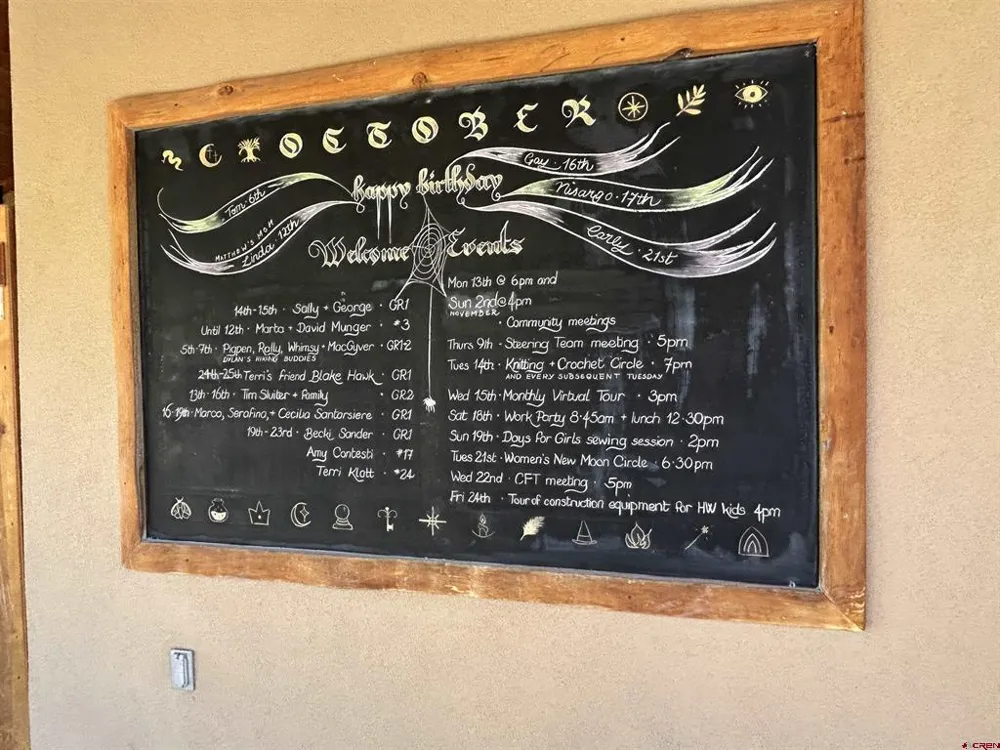 OCTOBER
happy birthday
Tom · 6th
MATTHEW'S MOM
Linda · 12th
Gay · 16th
Nisargo · 17th
Carly · 21st
Welcome
14th-15th · Sally + George · GR1
Until 12th · Marta + David Munger · #3
5th-7th · Pigpen, Rolly, Whimsy + MacGyver · GR1+2
DYLAN'S HIKING BUDDIES
24th-25th Terri's friend Blake Hawk · GR1
13th-16th · Tim Sluiter + Family · GR2
16-19th · Marco, Serafina, + Cecilia Santorsiere · GR1
19th-23rd · Becki Sander · GR1
Amy Contesti · #17
Terri Klott · #24
Events
Mon 13th @ 6pm and
Sun 2nd @ 4pm
NOVEMBER
· Community meetings
Thurs 9th · Steering Team meeting · 5pm
Tues 14th · Knitting + Crochet Circle · 7pm
AND EVERY SUBSEQUENT TUESDAY
Wed 15th · Monthly Virtual Tour · 3pm
Sat 18th · Work Party 8·45am + lunch 12·30pm
Sun 19th · Days For Girls sewing session · 2pm
Tues 21st · Women's New Moon Circle · 6·30pm
Wed 22nd · CFT meeting · 5pm
Fri 24th · Tour of construction equipment for HW kids 4pm
CREN